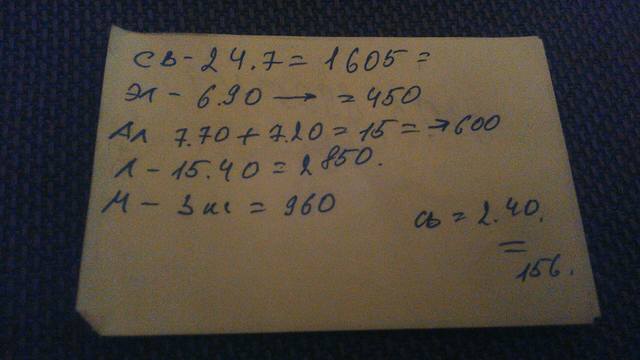 СВ - 24.7 = 1605 =
Эл - 6.90 → = 450
Ал 7.70 + 7.20 = 15 = → 600
Л - 15.40 = 2850.
М - 3 кг = 960
СВ = 2.40.
=
156.